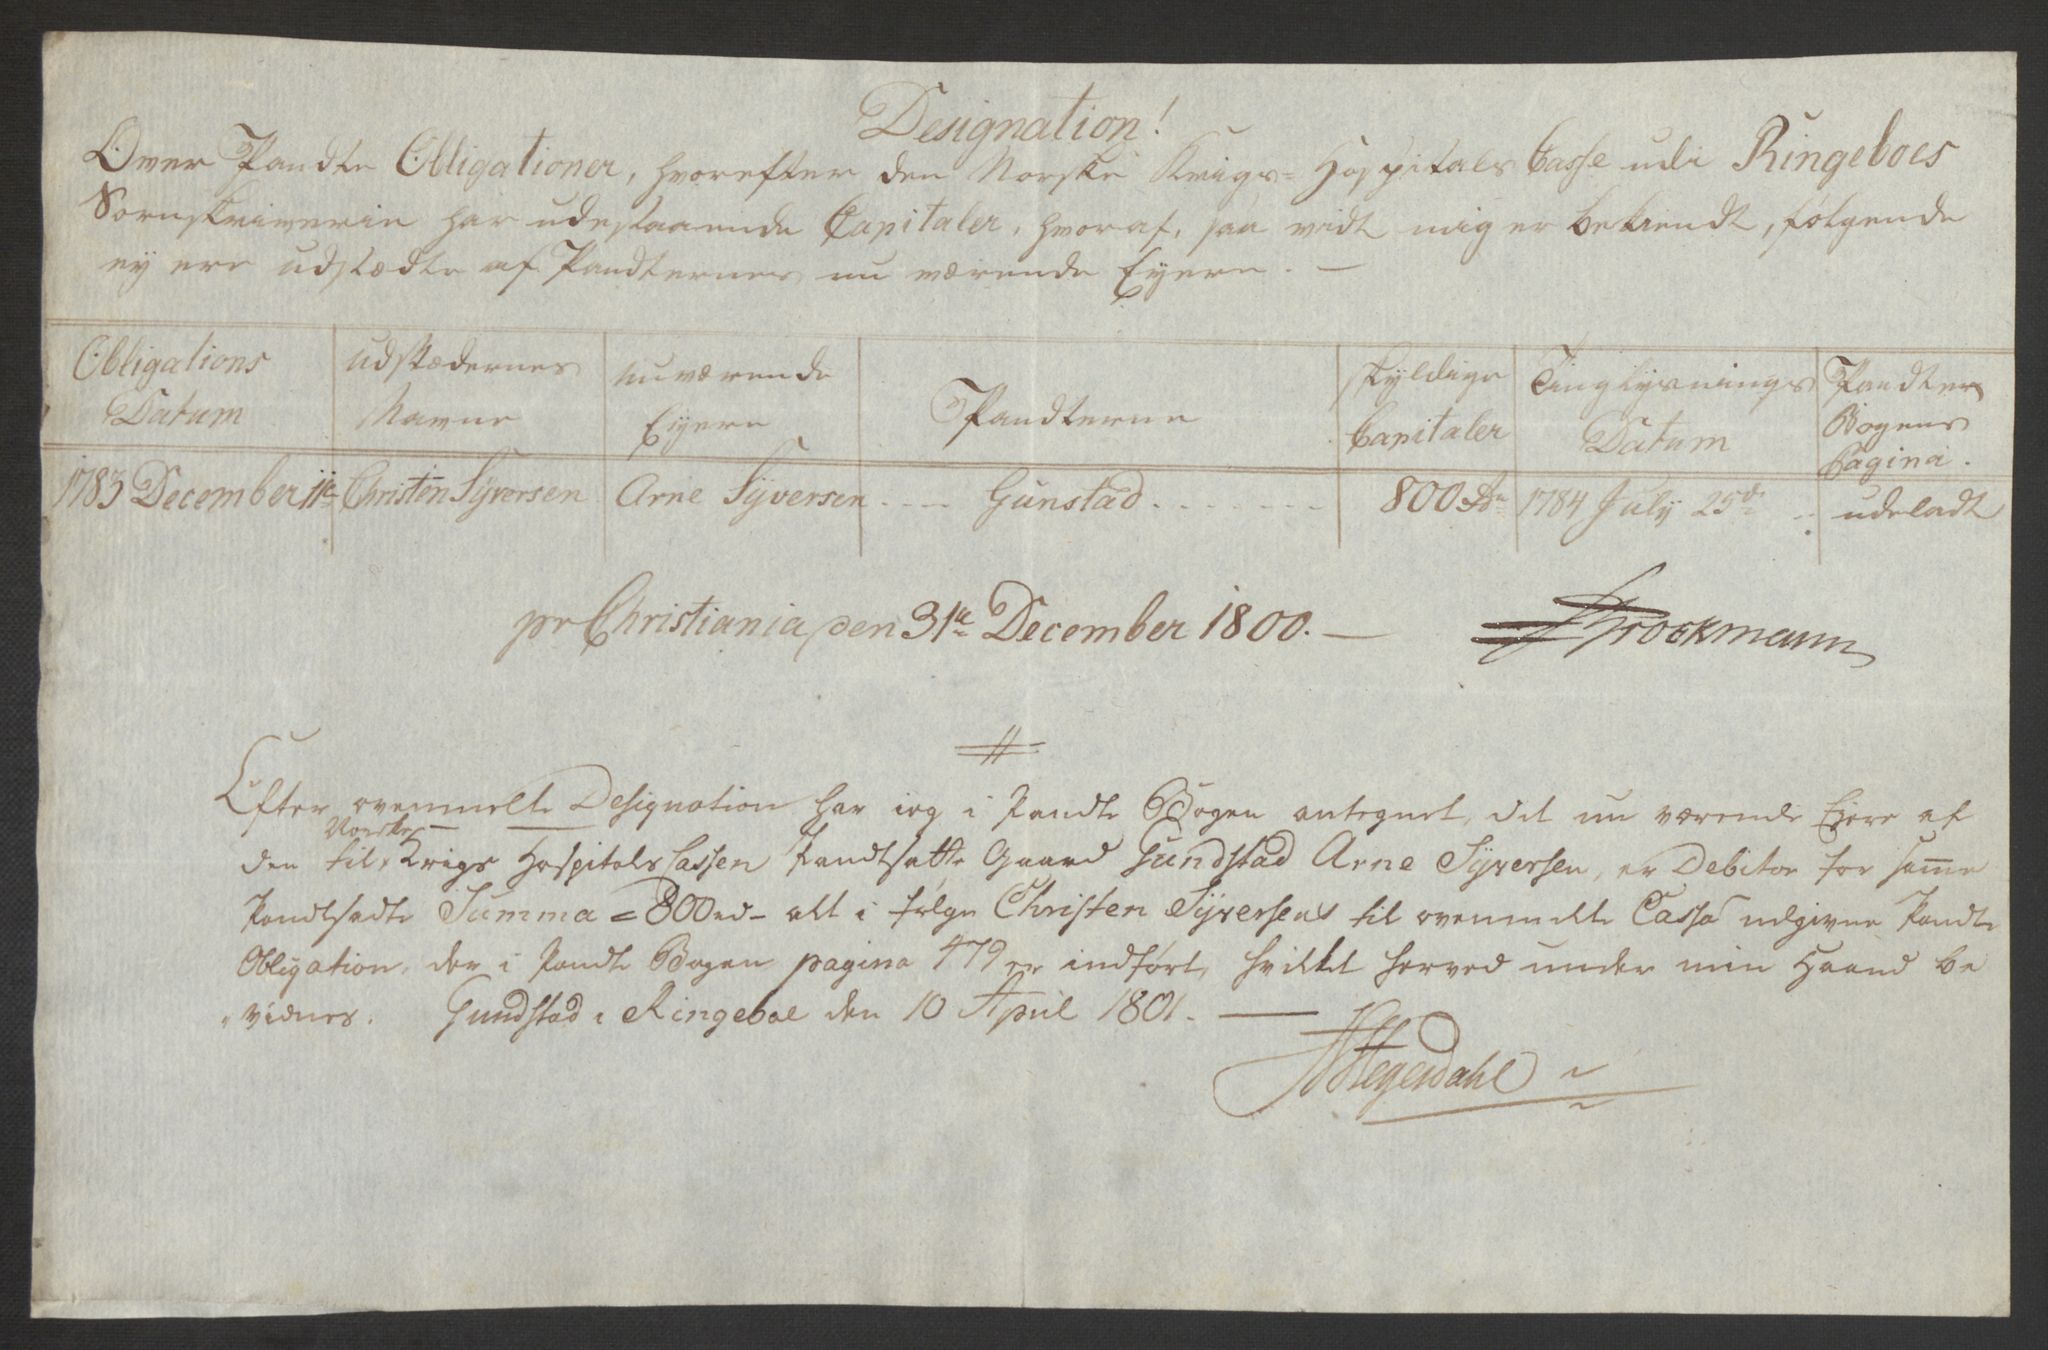 Designation!
Over Pandte Obligationer, hvorefter den Norske Krigs- Hospitals Casse udi Ringeboes
Sorenskriverie har udestaaende Capitaler, hvoraf, saa vidt mig er bekiendt, følgende
ey ere udstædte af Pandternes nu værende Eyere. —
Obligations Datum | udstædernes Navne | nuværende Eyere | Pandterne | skyldige Capitaler | Tinglysnings Datum | Pandter Bogens Pagina.
1783 December 11te | Christen Syversen | Arne Syversen | Gunstad | 800 Rd | 1784 July 25de | udeladt
pr Christiania den 31te December 1800. —
Brockmann
Efter ovenmelte Designation har ieg i Pandte Bogen antegnet, det nu værende Ejere af
den til Norske Krigs Hospitals Cassen Pandtsatte Gaard Gundstad Arne Syversen, er Debitor for samme
Pandtsadte Summa = 800 rd - alt i følge Christen Syversens til ovenmelte Cassa udgivne Pandte
Obligation, der i Pandte Bogen pagina 479 er indført, hvilket herved under min Haand be
vidnes. Gundstad i Ringeboe den 10 April 1801. —
Stegerdahl